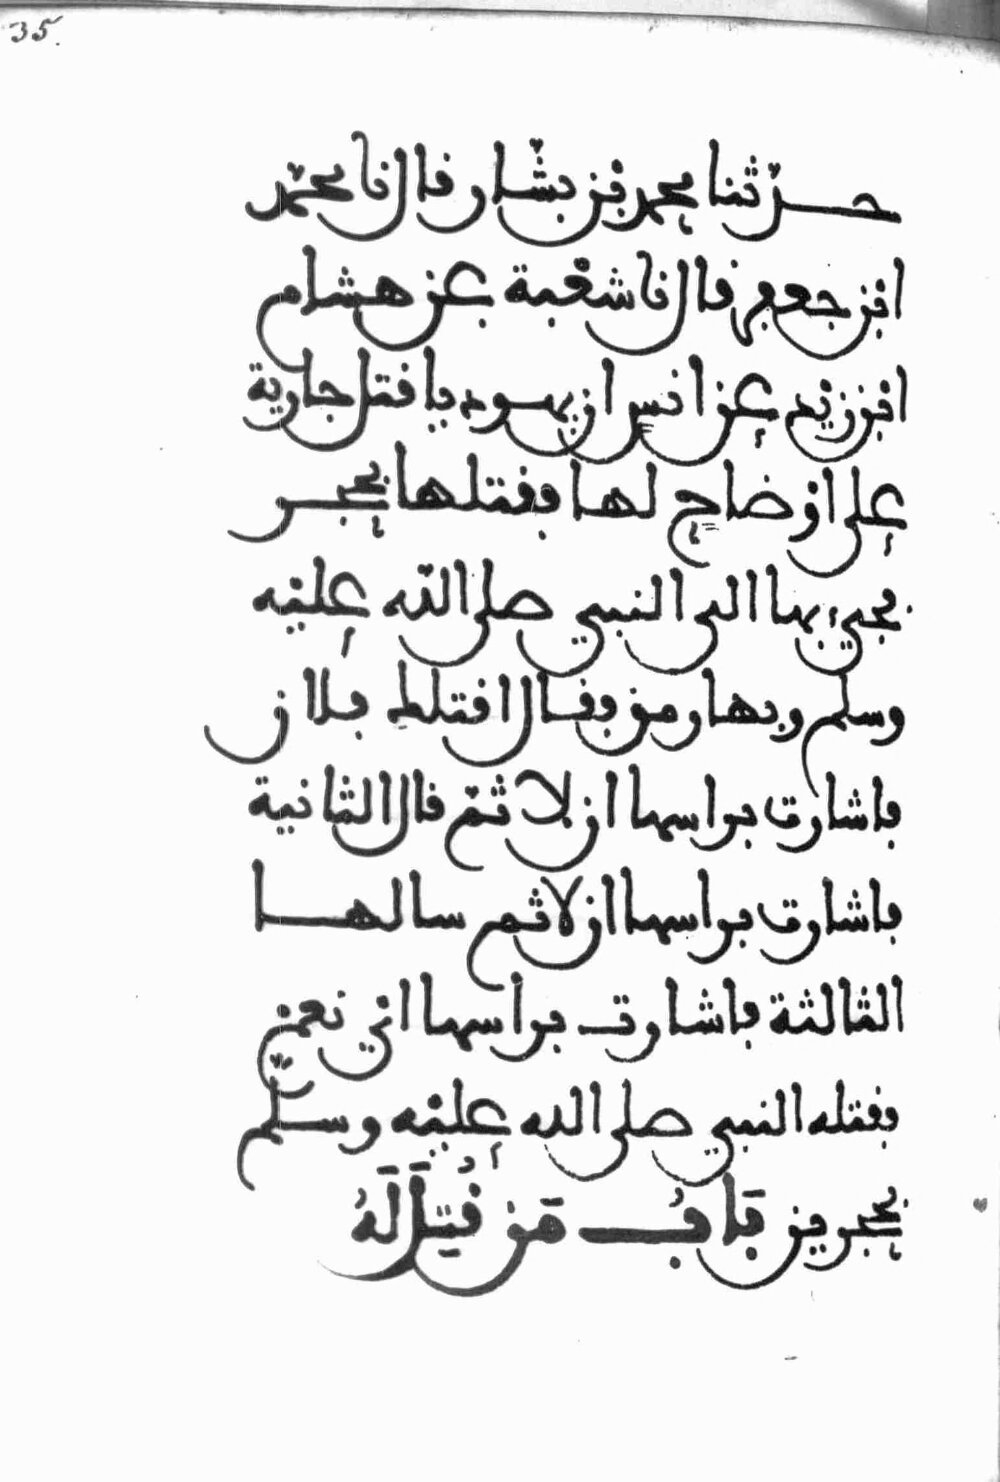 35.
حدثنا محمد بن بشار قال نا محمد
ابن جعفر قال نا شعبة عن هشام
ابن زيد عن انس ان يهوديا قتل جارية
على اوضاح لها فقتلها بحجر
فجيء بها الى النبي صلى الله عليه
وسلم وبها رمق فقال اقتلك فلان
فاشارت براسها ان لا ثم قال الثانية
فاشارت براسها ان لا ثم سالها
الثالثة فاشارت براسها اي نعم
فقتله النبي صلى الله عليه وسلم
بحجرين بَابُ مَن قُتِلَ لَهُ